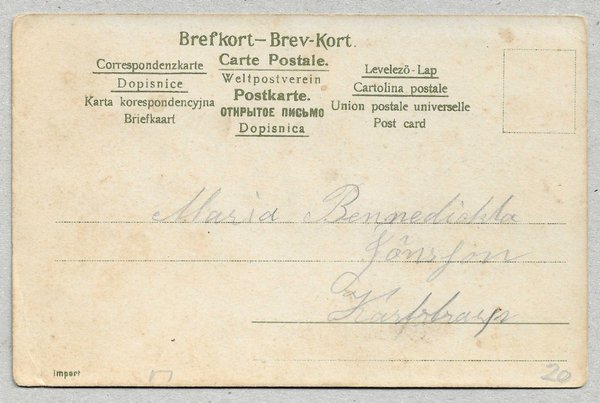 Brefkort—Brev-Kort.
Correspondenzkarte
Dopisnice
Karta korespondencyjna
Briefkaart
Carte Postale.
Weltpostverein
Postkarte.
ОТКРЫТОЕ ПИСЬМО
Dopisnica
Levelező-Lap
Cartolina postale
Union postale universelle
Post card
Maria Bennedickta
Jönsson
import
20